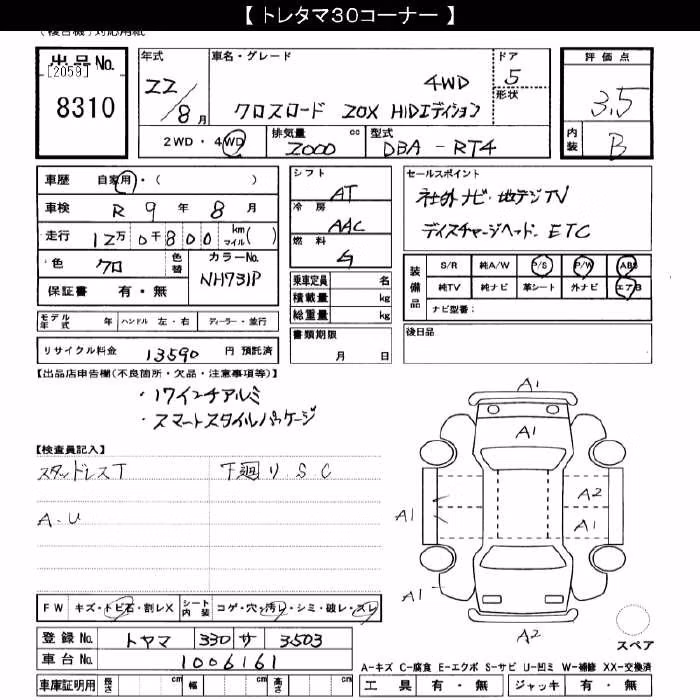 【 トレタマ30コーナー 】
(複合機)対応用紙
出品No. [2059] 8310
年式 22/8月
車名・グレード 4WD クロスロード 20X HIDエディション
ドア 5 形状
評価点 3.5
内装 B
2WD・4WD 排気量 cc 2000 型式 DBA-RT4
車歴 自家用・( )
車検 R 9年 8月
走行 12万0千800 km マイル( )
色 クロ 色替 カラーNo. NH731P
保証書 有・無
シフト AT
冷房 AAC
燃料 G
乗車定員 名
積載量 kg
総重量 kg
セールスポイント
社外ナビ・地デジTV
ディスチャージヘッド. ETC
装備品 S/R 純A/W P/S P/W ABS
純TV 純ナビ 革シート 外ナビ エアB
ナビ型番:
モデル年式 年 ハンドル 左・右 ディーラー・並行
書類期限 月 日
後日品
リサイクル料金 13590 円 預託済
【出品店申告欄(不良箇所・欠品・注意事項等)】
・17インチアルミ
・スマートスタイルパッケージ
【検査員記入】
スタッドレスT 下廻り SC
A・U
A1
A1
A2
A1
A1
A1
A2
スペア
FW キズ・トビ石・割レX シート内装 コゲ・穴・汚レ・シミ・破レ・スレ
登録No. トヤマ 330 サ 3503
車台No. 1006161
車庫証明用 長さ cm 幅 cm 高さ cm
A-キズ C-腐食 E-エクボ S-サビ U-凹ミ W-補修 XX-交換済
工具 有・無 ジャッキ 有・無